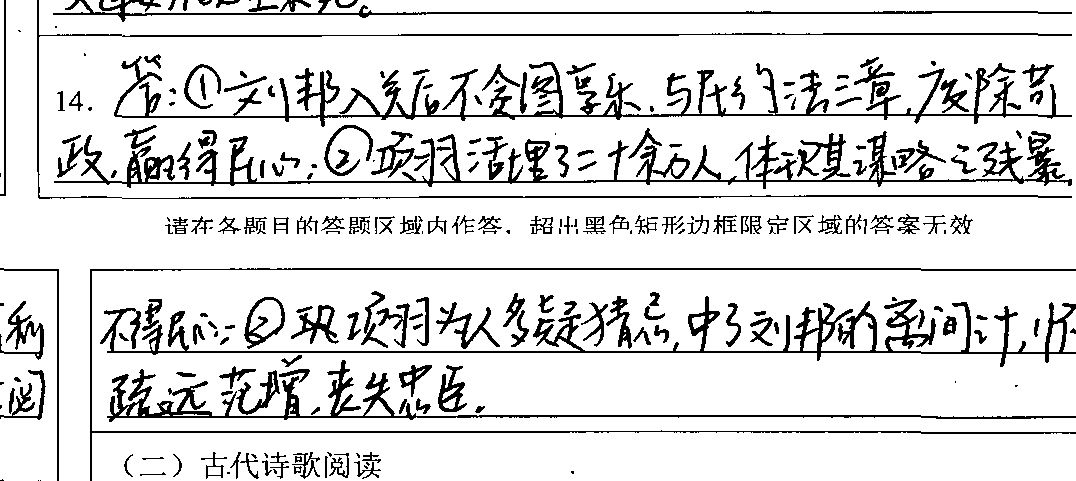 14. 答：①刘邦入关后不贪图享乐，与民约法三章，废除苛
政，赢得民心；②项羽活埋了二十余万人，体现其谋略之残暴，
请在各题目的答题区域内作答，超出黑色矩形边框限定区域的答案无效
不得民心；③项羽为人多疑猜忌，中了刘邦的离间计，怀
疏远范增，丧失忠臣。
（二）古代诗歌阅读